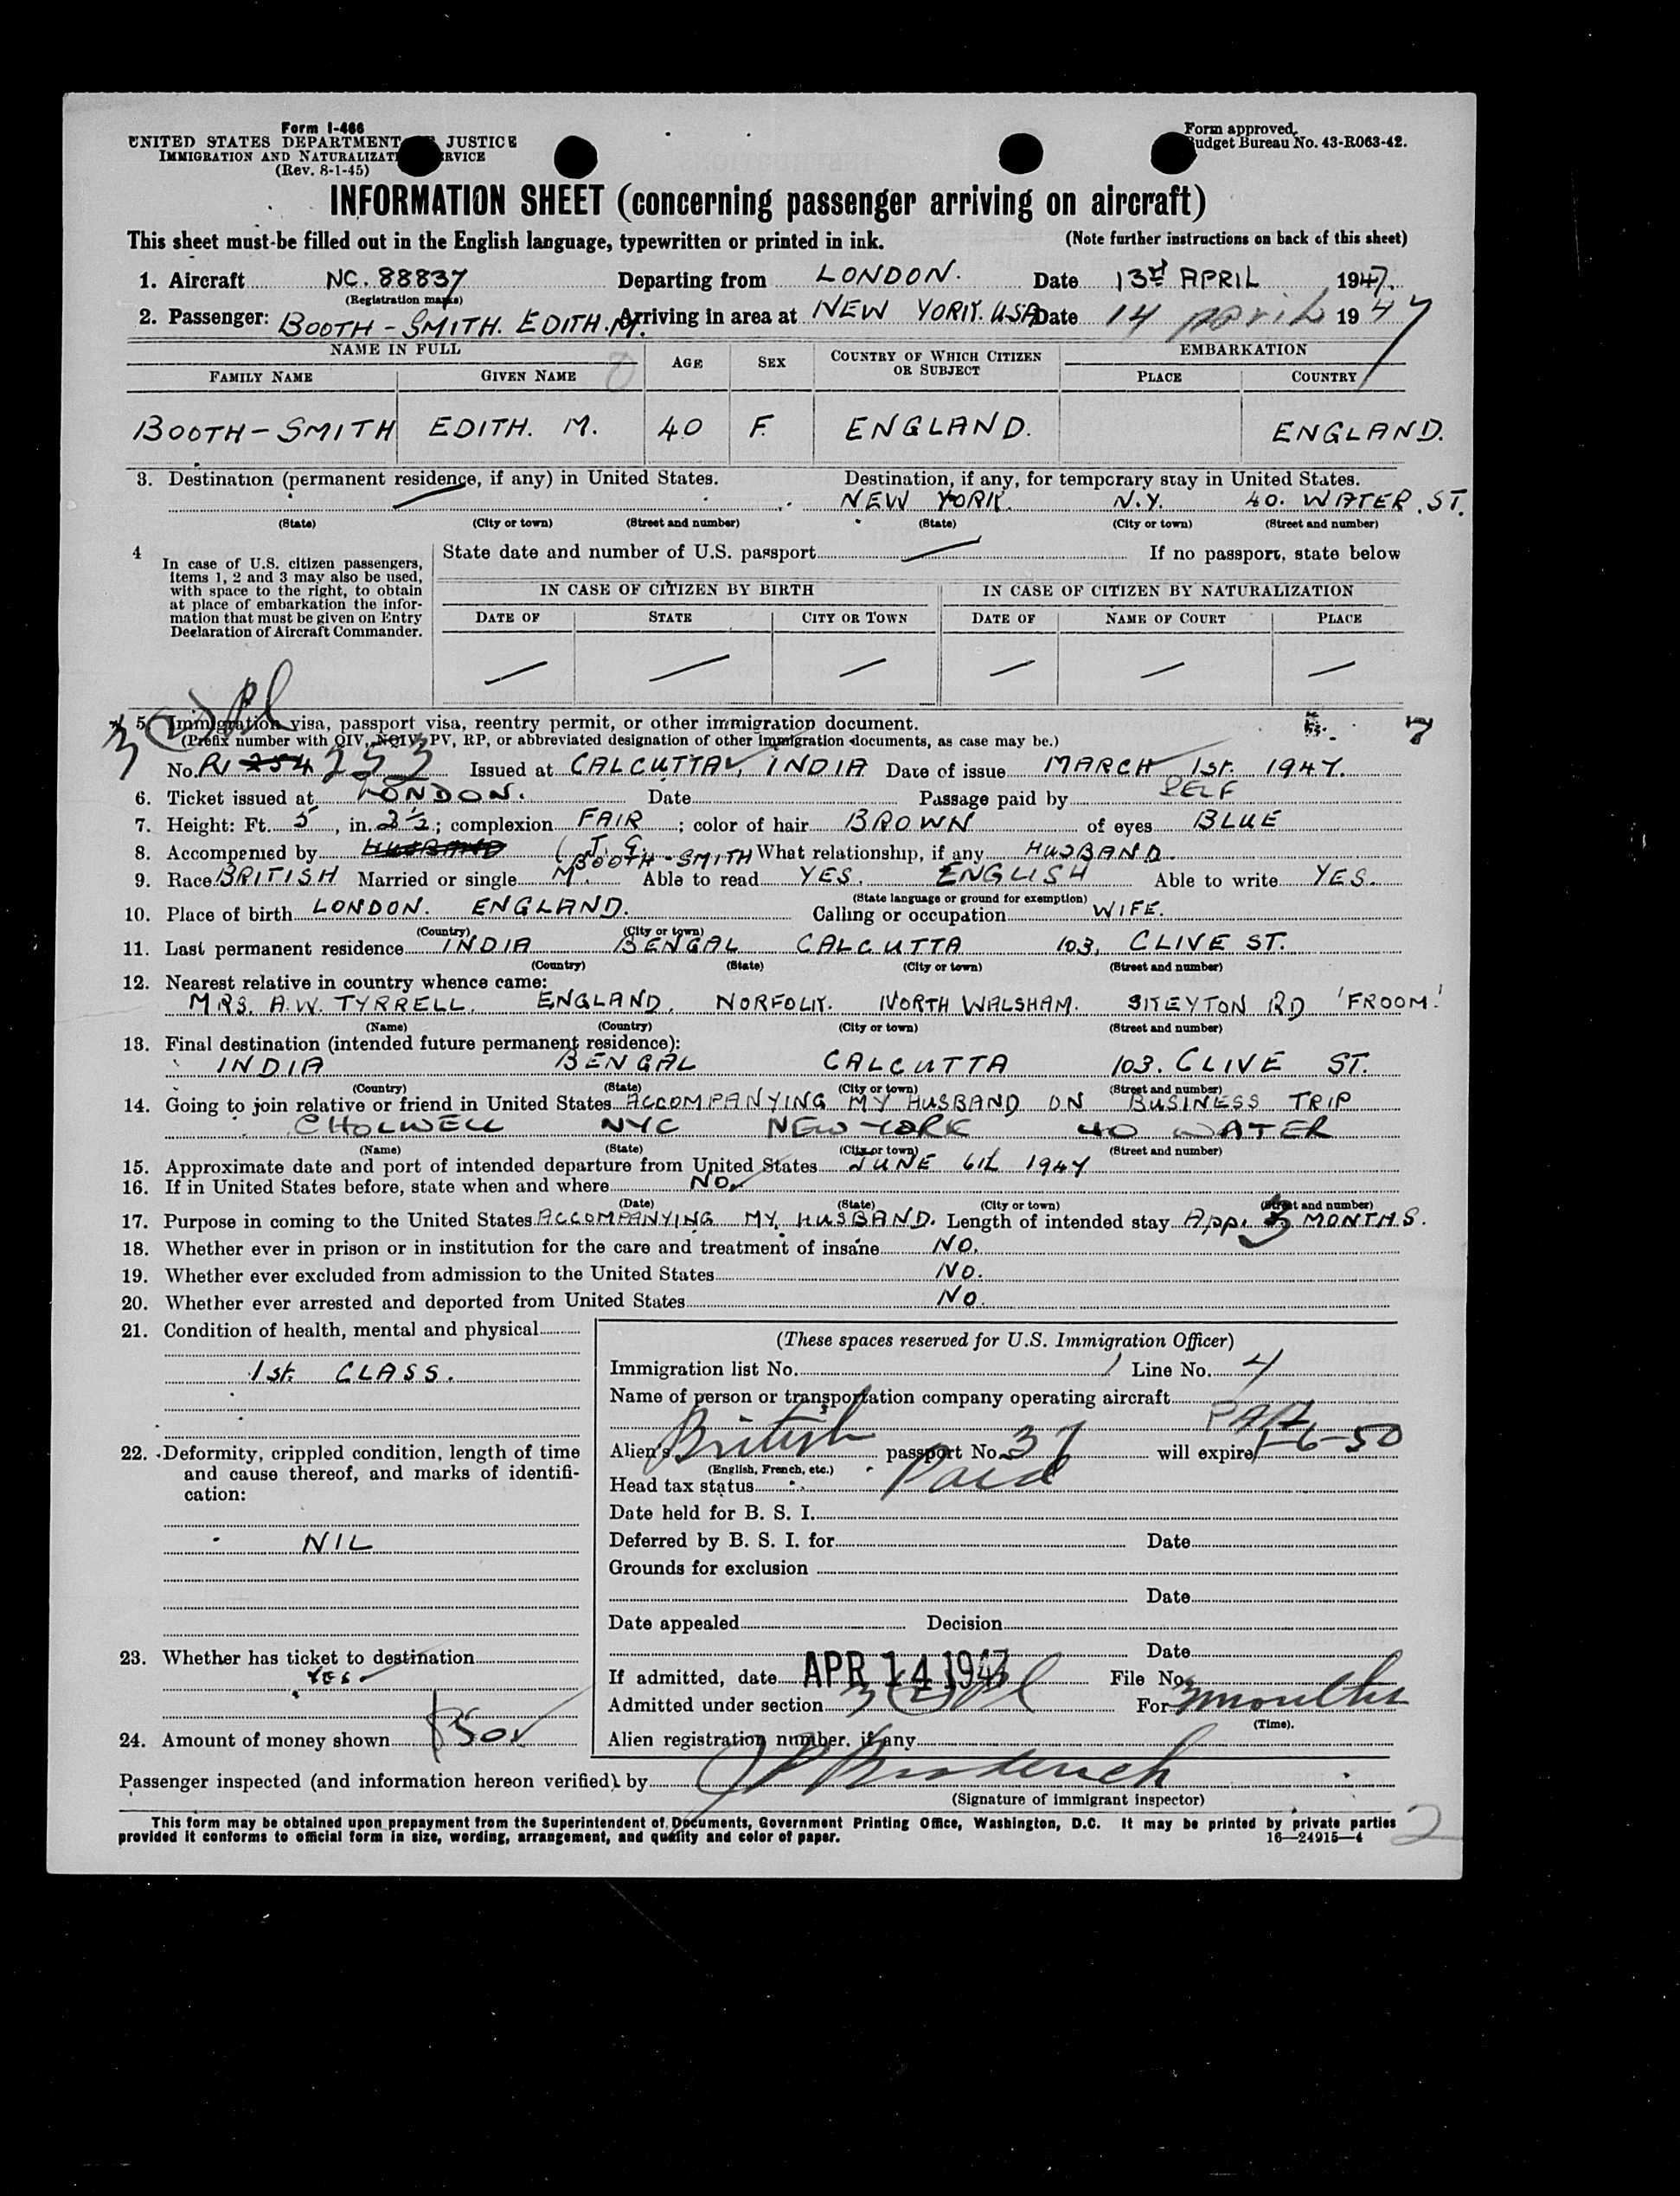 Form I-466
UNITED STATES DEPARTMENT JUSTICE
IMMIGRATION AND NATURALIZAT RVICE
(Rev. 8-1-45)
Form approved.
udget Bureau No. 43-R063-42.
INFORMATION SHEET (concerning passenger arriving on aircraft)
This sheet must be filled out in the English language, typewritten or printed in ink. (Note further instructions on back of this sheet)
1. Aircraft NC. 88837 Departing from LONDON. Date 13th APRIL 1947.
(Registration marks)
2. Passenger: BOOTH-SMITH. EDITH. M. Arriving in area at NEW YORK. USA Date 14 April 1947
NAME IN FULL AGE SEX COUNTRY OF WHICH CITIZEN OR SUBJECT EMBARKATION
FAMILY NAME GIVEN NAME PLACE COUNTRY
BOOTH-SMITH EDITH. M. 40 F. ENGLAND. ENGLAND.
3. Destination (permanent residence, if any) in United States. Destination, if any, for temporary stay in United States.
NEW YORK. N.Y. 40. WATER. ST.
(State) (City or town) (Street and number) (State) (City or town) (Street and number)
4 In case of U.S. citizen passengers, items 1, 2 and 3 may also be used, with space to the right, to obtain at place of embarkation the information that must be given on Entry Declaration of Aircraft Commander.
State date and number of U.S. passport If no passport, state below
IN CASE OF CITIZEN BY BIRTH IN CASE OF CITIZEN BY NATURALIZATION
DATE OF STATE CITY OR TOWN DATE OF NAME OF COURT PLACE
5. Immigration visa, passport visa, reentry permit, or other immigration document. 7
(Prefix number with QIV, NQIV, PV, RP, or abbreviated designation of other immigration documents, as case may be.)
No. 254 253 Issued at CALCUTTA, INDIA Date of issue MARCH 1st. 1947.
6. Ticket issued at LONDON. Date Passage paid by SELF
7. Height: Ft. 5, in. 2½; complexion FAIR; color of hair BROWN of eyes BLUE
8. Accompanied by HUSBAND (J. G. BOOTH-SMITH What relationship, if any HUSBAND.
9. Race BRITISH Married or single M. Able to read YES. ENGLISH Able to write YES.
(State language or ground for exemption)
10. Place of birth LONDON. ENGLAND. Calling or occupation WIFE.
(Country) (City or town)
11. Last permanent residence INDIA BENGAL CALCUTTA 103, CLIVE ST.
(Country) (State) (City or town) (Street and number)
12. Nearest relative in country whence came:
MRS. A.W. TYRRELL. ENGLAND. NORFOLK. NORTH WALSHAM. SKEYTON RD 'FROOM'
(Name) (Country) (City or town) (Street and number)
13. Final destination (intended future permanent residence):
INDIA BENGAL CALCUTTA 103. CLIVE ST.
(Country) (State) (City or town) (Street and number)
14. Going to join relative or friend in United States ACCOMPANYING MY HUSBAND ON BUSINESS TRIP
CHOLWELL NYC NEW YORK 40 WATER
(Name) (State) (City or town) (Street and number)
15. Approximate date and port of intended departure from United States JUNE 6th 1947
16. If in United States before, state when and where NO.
(Date) (State) (City or town) (Street and number)
17. Purpose in coming to the United States ACCOMPANYING MY HUSBAND. Length of intended stay App. 3 MONTHS.
18. Whether ever in prison or in institution for the care and treatment of insane NO.
19. Whether ever excluded from admission to the United States NO.
20. Whether ever arrested and deported from United States NO.
21. Condition of health, mental and physical
1st. CLASS.
22. Deformity, crippled condition, length of time
and cause thereof, and marks of identifi-
cation:
NIL
23. Whether has ticket to destination
YES
24. Amount of money shown $50
(These spaces reserved for U.S. Immigration Officer)
Immigration list No. 1 Line No. 4
Name of person or transportation company operating aircraft
PAA
Alien's British passport No. 37 will expire 1-6-50
(English, French, etc.)
Head tax status Paid
Date held for B. S. I.
Deferred by B. S. I. for Date
Grounds for exclusion
Date
Date appealed Decision
Date
If admitted, date APR 14 1947 File No.
Admitted under section 3(2) For 3 months
(Time).
Alien registration number, if any
Passenger inspected (and information hereon verified) by
(Signature of immigrant inspector)
This form may be obtained upon prepayment from the Superintendent of Documents, Government Printing Office, Washington, D.C. It may be printed by private parties
provided it conforms to official form in size, wording, arrangement, and quality and color of paper. 16—24915-4 2